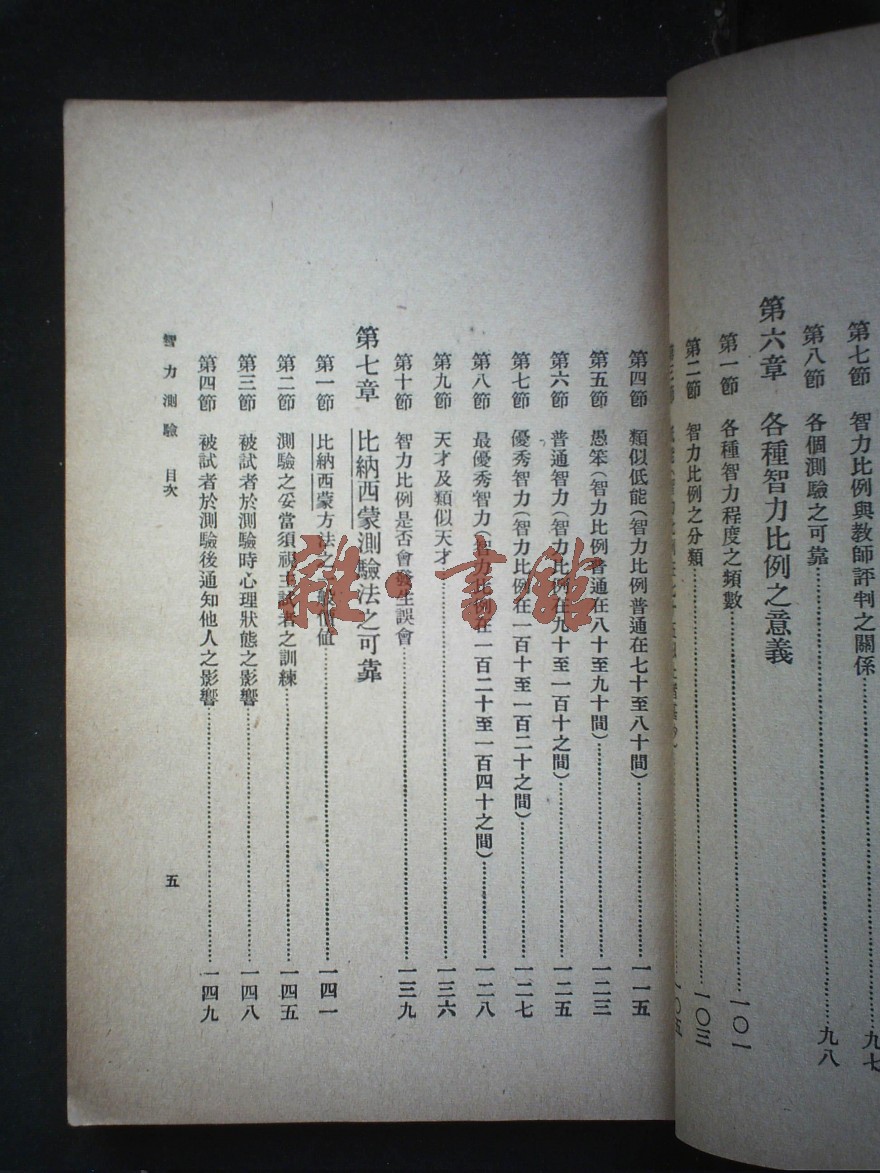 第七節 智力比例與教師評判之關係……九七
第八節 各個測驗之可靠……九八
第六章 各種智力比例之意義
第一節 各種智力程度之頻數……一〇一
第二節 智力比例之分類……一〇三
第三節……一〇五
第四節 類似低能(智力比例普通在七十至八十間)……一一五
第五節 愚笨(智力比例普通在八十至九十間)……一二三
第六節 普通智力(智力比例在九十至一百十之間)……一二五
第七節 優秀智力(智力比例在一百十至一百二十之間)……一二七
第八節 最優秀智力(智力比例在一百二十至一百四十之間)……一二八
第九節 天才及類似天才……一三六
第十節 智力比例是否會發生誤會……一三九
第七章 比納西蒙測驗法之可靠
第一節 比納西蒙方法之一般價值……一四一
第二節 測驗之妥當須視主試者之訓練……一四五
第三節 被試者於測驗時心理狀態之影響……一四八
第四節 被試者於測驗後通知他人之影響……一四九
智力測驗 目次
五
雜·書館